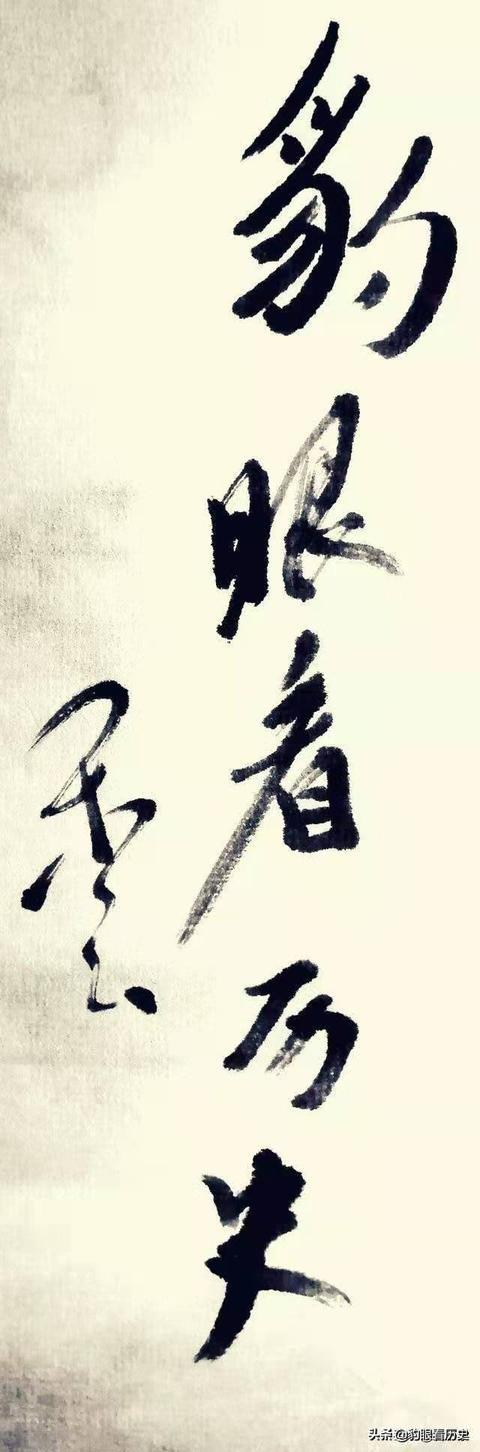 豹眼看历史
头条@豹眼看历史